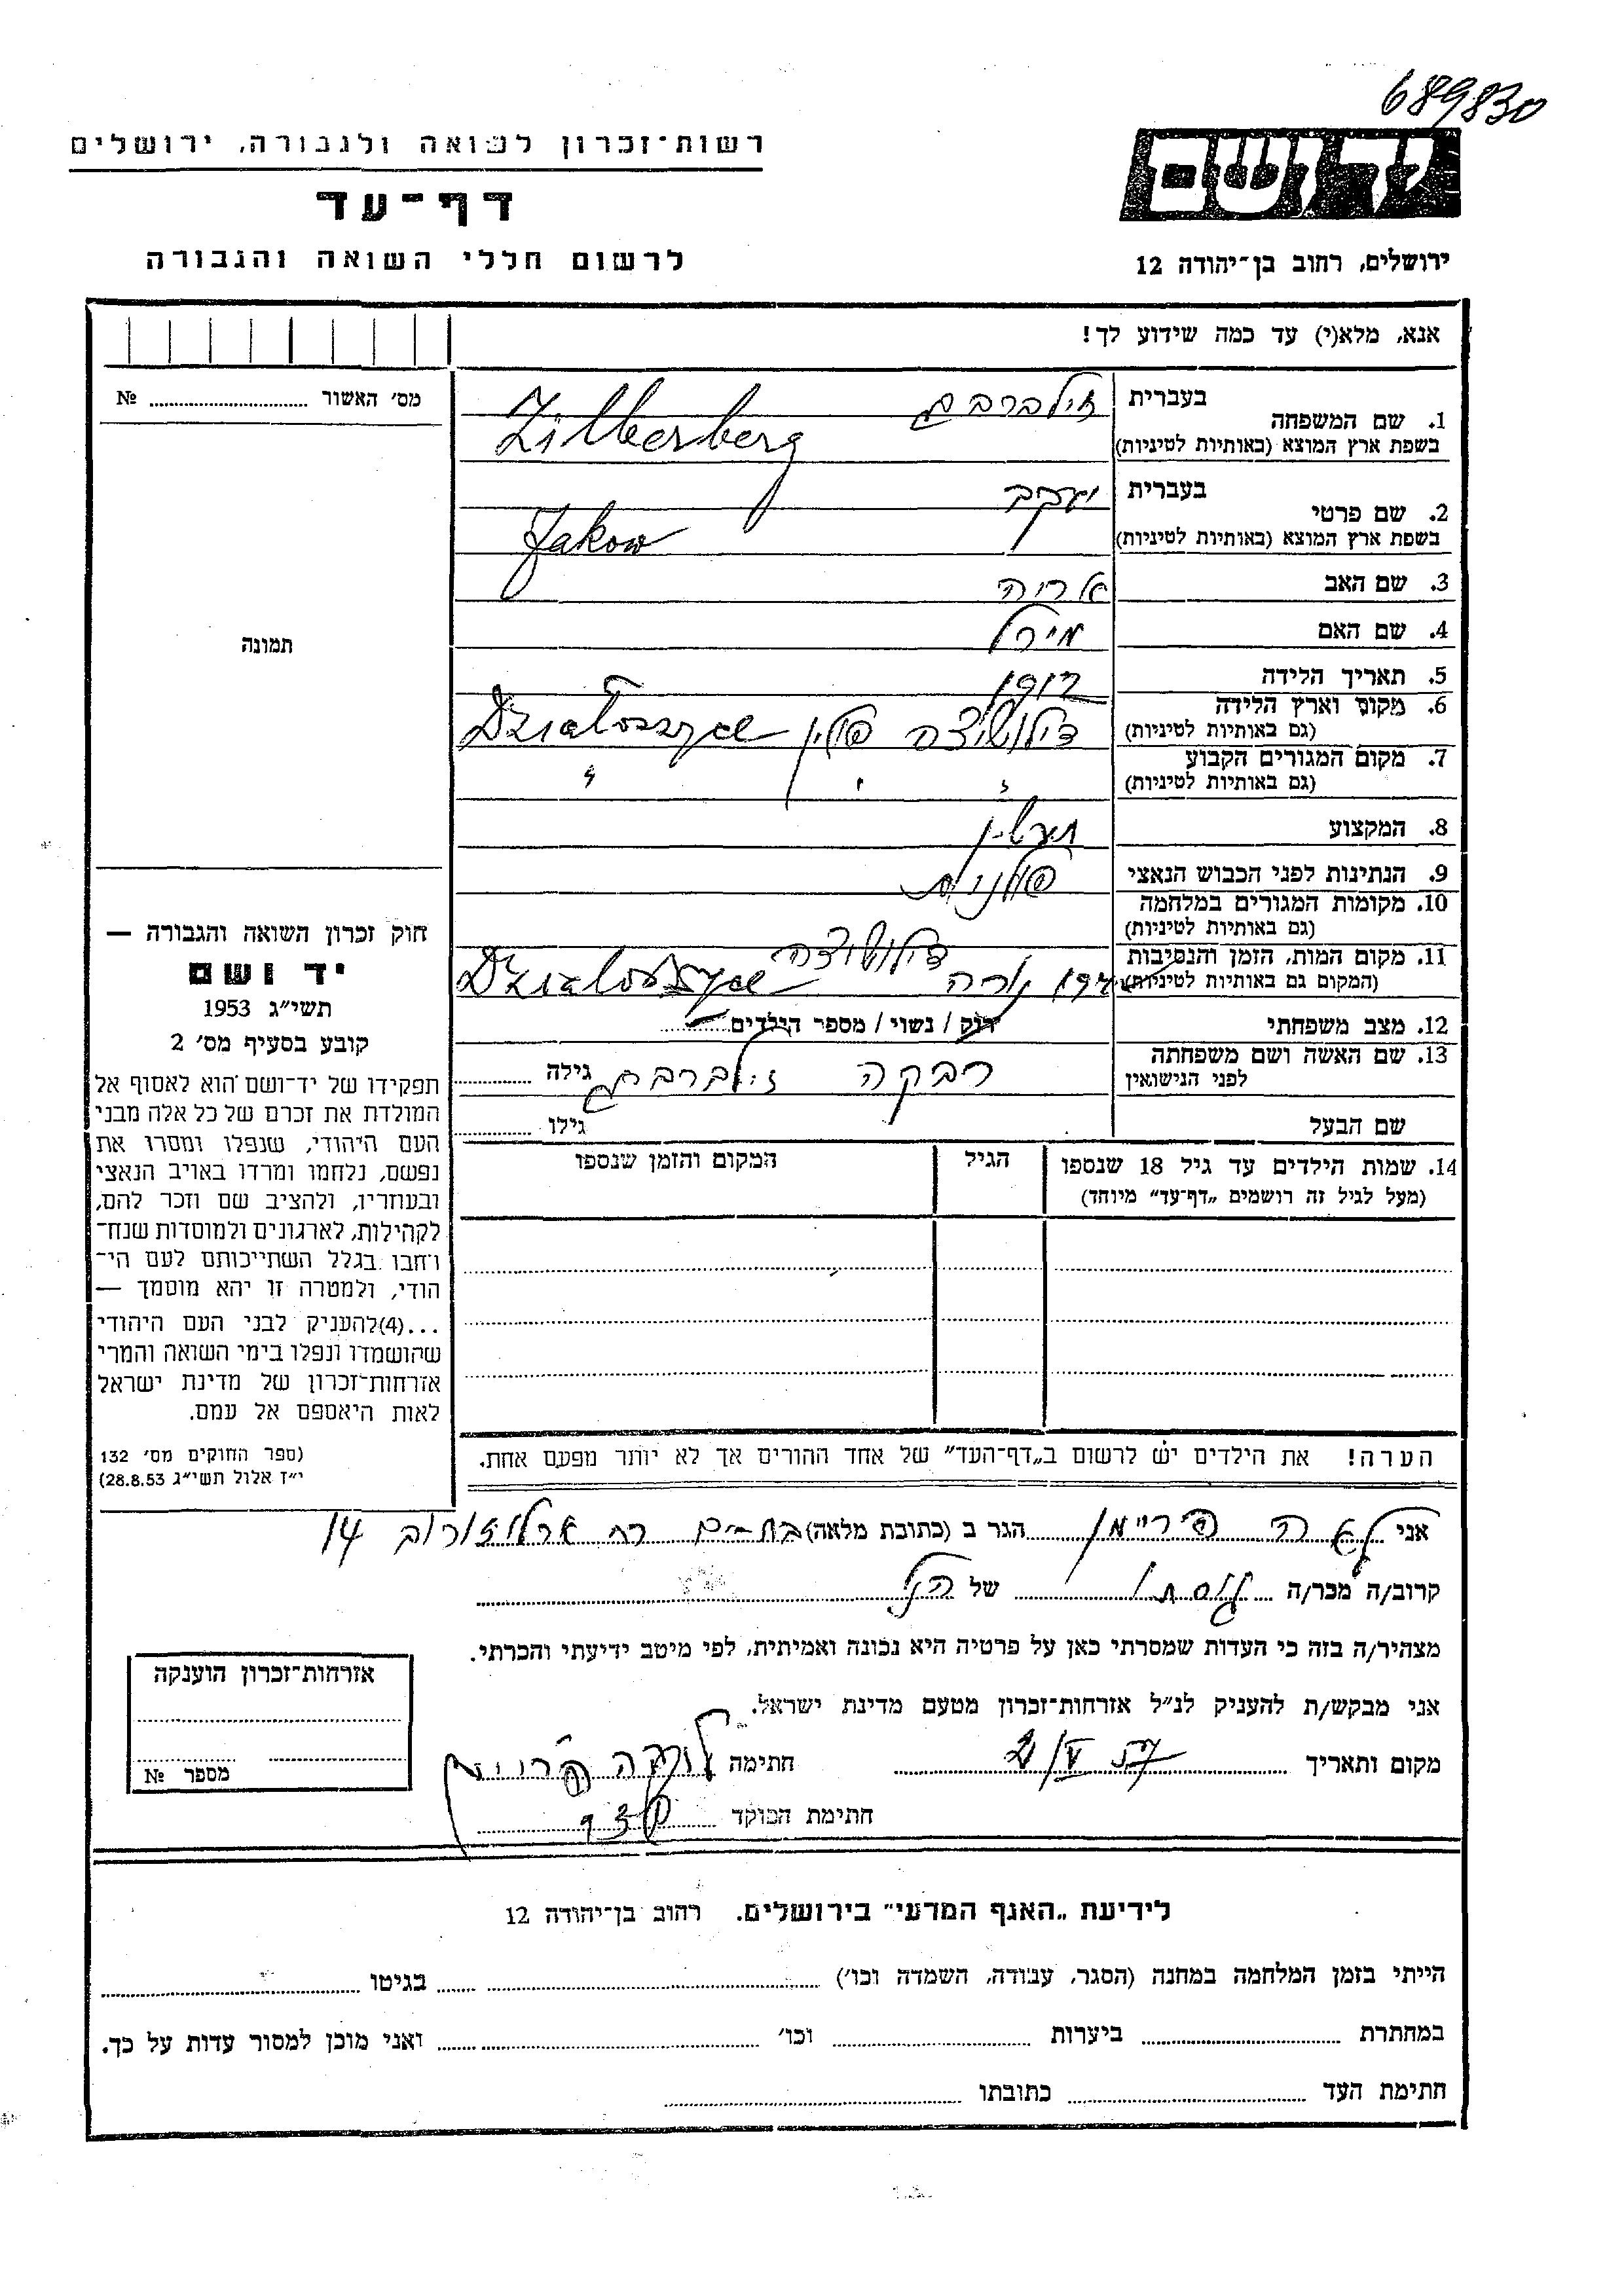 689830
יד ושם
רשות־זכרון לשואה ולגבורה, ירושלים
דף־עד
לרשום חללי השואה והגבורה
ירושלים, רחוב בן־יהודה 12
אנא, מלא(י) עד כמה שידוע לך!
מס׳ האשור ........ №
1. שם המשפחה
בעברית
זילברברג
בשפת ארץ המוצא (באותיות לטיניות)
Zilberberg
2. שם פרטי
בעברית
יעקב
בשפת ארץ המוצא (באותיות לטיניות)
Jakow
3. שם האב
אריה
4. שם האם
מירל
תמונה
5. תאריך הלידה
1912
6. מקום וארץ הלידה
(גם באותיות לטיניות)
פולין Dzialoszyce
7. מקום המגורים הקבוע
(גם באותיות לטיניות)
8. המקצוע
9. הנתינות לפני הכבוש הנאצי
פולנית
10. מקומות המגורים במלחמה
(גם באותיות לטיניות)
11. מקום המות, הזמן והנסיבות
(המקום גם באותיות לטיניות)
Dzialoszyce
12. מצב משפחתי
רוק / נשוי / מספר הילדים
13. שם האשה ושם משפחתה
לפני הנישואין
רבקה זילברברג גילה
שם הבעל
גילו
14. שמות הילדים עד גיל 18 שנספו
(מעל לגיל זה רושמים „דף־עד״ מיוחד)
הגיל
המקום והזמן שנספו
הערה! את הילדים יש לרשום ב„דף־העד״ של אחד ההורים אך לא יותר מפעם אחת.
חוק זכרון השואה והגבורה —
יד ושם
תשי״ג 1953
קובע בסעיף מס׳ 2
תפקידו של יד־ושם הוא לאסוף אל
המולדת את זכרם של כל אלה מבני
העם היהודי, שנפלו ומסרו את
נפשם, נלחמו ומרדו באויב הנאצי
ובעוזריו, ולהציב שם וזכר להם,
לקהילות, לארגונים ולמוסדות שנח־
רחבו בגלל השתייכותם לעם הי־
הודי, ולמטרה זו יהא מוסמך —
...(4)להעניק לבני העם היהודי
שהושמדו ונפלו בימי השואה והמרי
אזרחות־זכרון של מדינת ישראל
לאות היאספם אל עמם.
(ספר החוקים מס׳ 132
י״ז אלול תשי״ג 28.8.53)
אני לאה פריימן הגר ב (כתובת מלאה) בת־ים רח ארלוזורוב 14
קרוב/ה מכר/ה גיסתו של הנ״ל
מצהיר/ה בזה כי העדות שמסרתי כאן על פרטיה היא נכונה ואמיתית, לפי מיטב ידיעתי והכרתי.
אני מבקש/ת להעניק לנ״ל אזרחות־זכרון מטעם מדינת ישראל.
מקום ותאריך
חתימה
חתימת הפוקד
אזרחות־זכרון הוענקה
מספר №
לידיעת „האגף המדעי״ בירושלים. רחוב בן־יהודה 12
הייתי בזמן המלחמה במחנה (הסגר, עבודה, השמדה וכו׳) בגיטו
במחתרת ביערות וכו׳ ואני מוכן למסור עדות על כך.
חתימת העד כתובתו